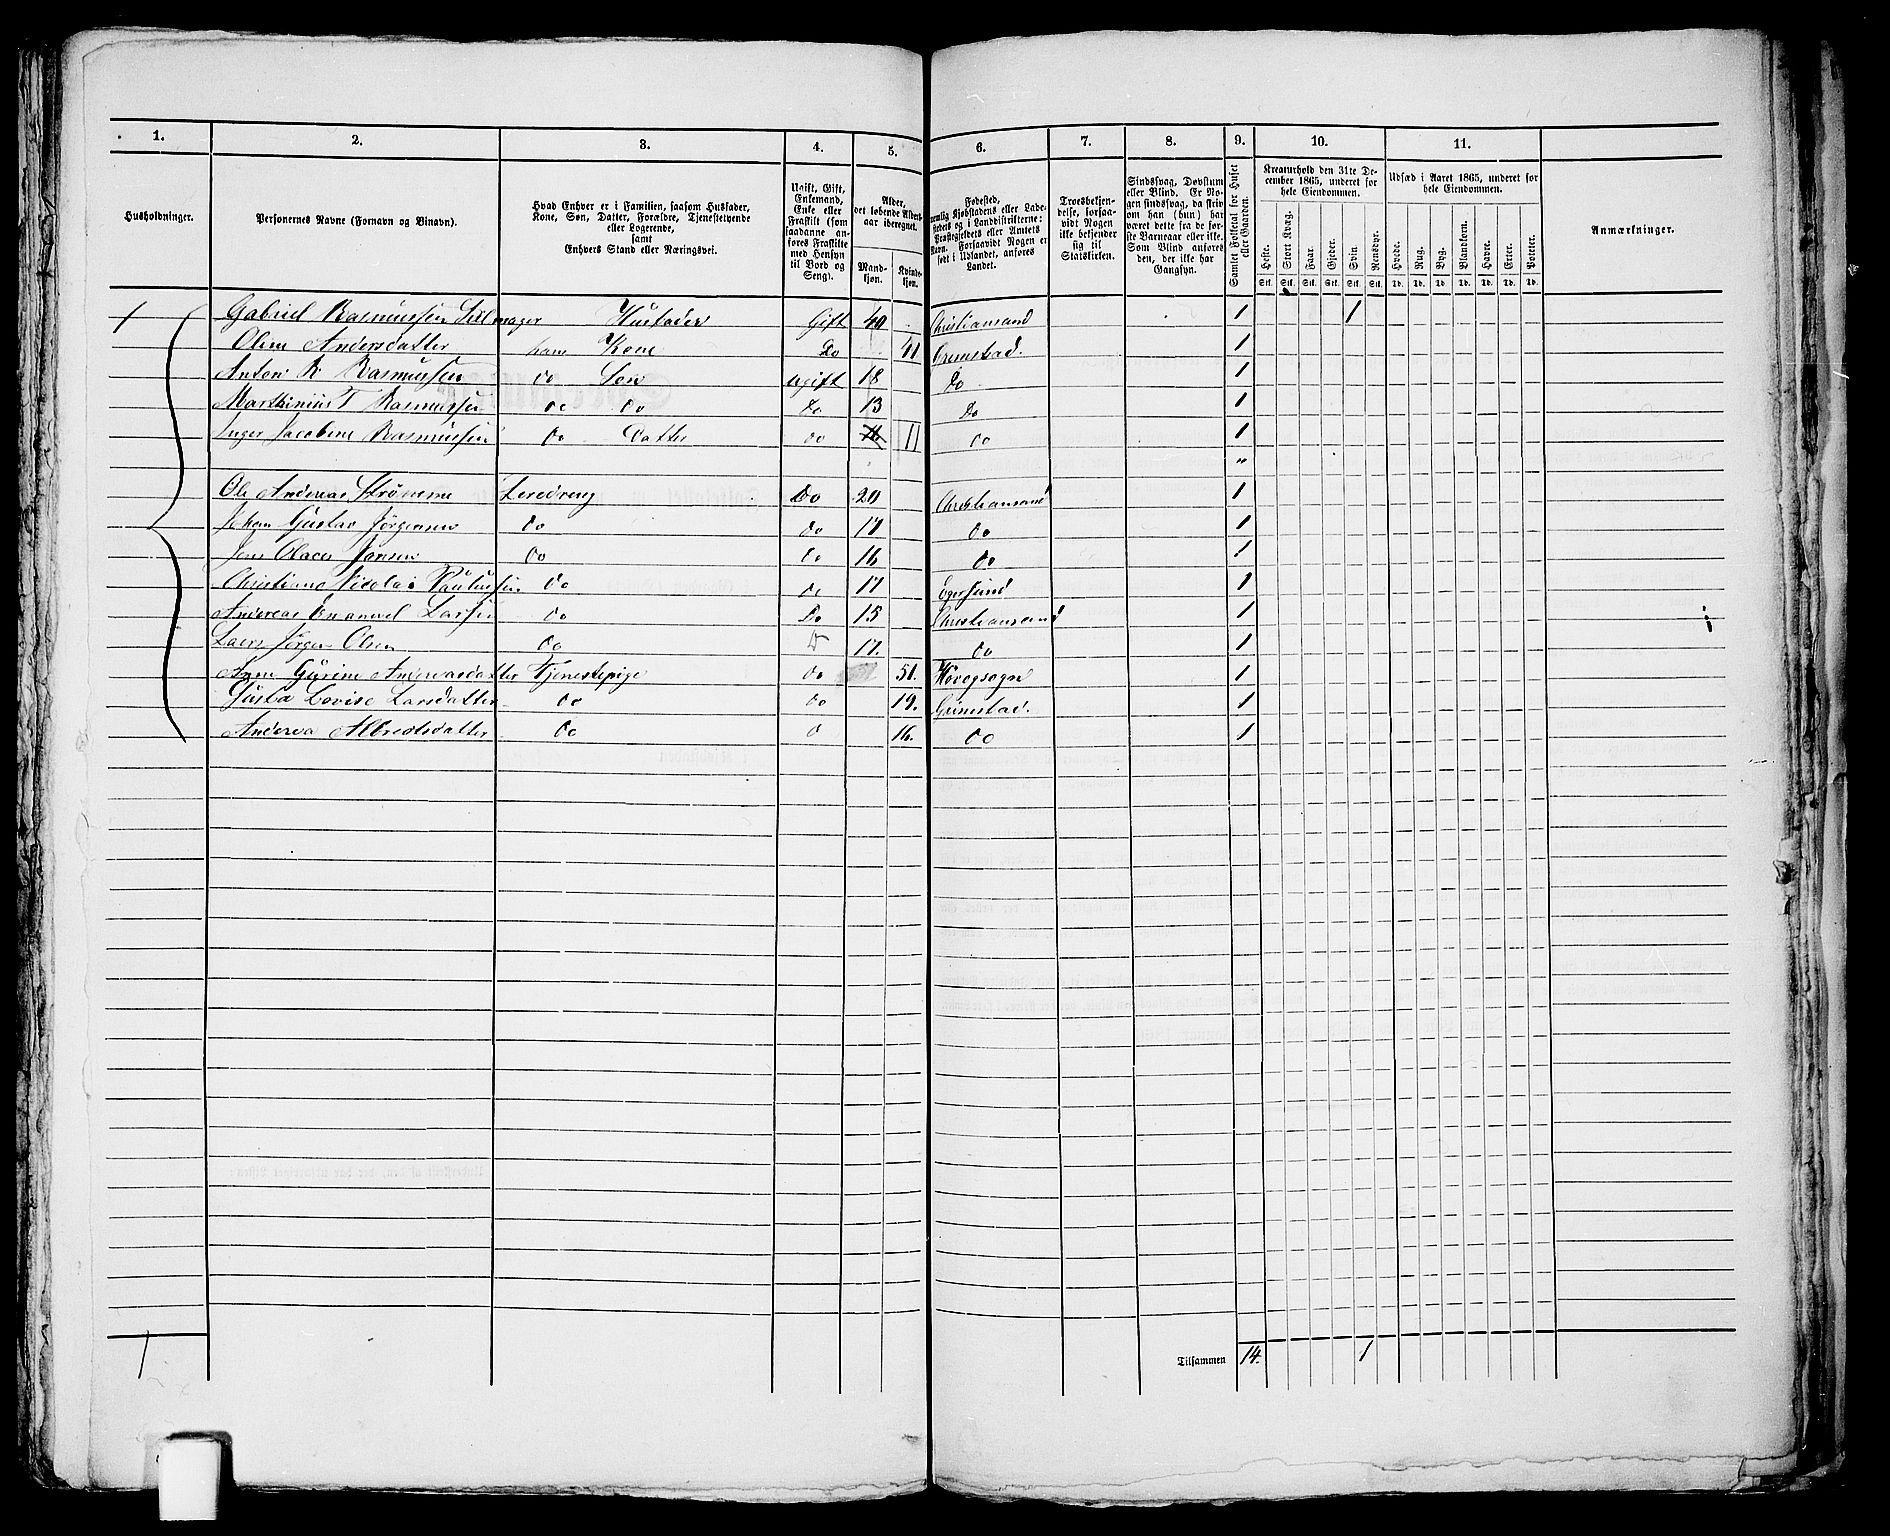 1. 2. 3. 4. 5. 6. 7. 8. 9. 10. 11.
Husholdninger.
Personernes Navne (Fornavn og Binavn).
Hvad Enhver er i Familien, saasom Husfader, Kone, Søn, Datter, Forældre, Tjenestetyende eller Logerende, samt Enhvers Stand eller Næringsvei.
Ugift, Gift, Enkemand, Enke eller Fraskilt (som saadanne anføres Fraskilte med Hensyn til Bord og Seng).
Alder, det løbende Alders-aar iberegnet.
Mandkjøn. Kvindekjøn.
Fødested, nemlig Kjøbstadens eller Ladestedets og i Landdistrikterne: Præstegjeldets eller Amtets Navn. Forsaavidt Nogen er født i Udlandet, anføres Landet.
Troesbekjendelse, forsaavidt Nogen ikke bekjender sig til Statskirken.
Sindssvag, Døvstum eller Blind. Er Nogen sindssvag, da skriv om han (hun) har været dette fra de første Barneaar eller ikke. Som Blind anføres den, der ikke har Gangsyn.
Samlet Folketal for Huset eller Gaarden.
Kreaturhold den 31te December 1865, underet for hele Eiendommen.
Heste. Stort Kvæg. Faar. Gjeder. Svin. Rensdyr.
Udsæd i Aaret 1865, underet for hele Eiendommen.
Hvede. Rug. Byg. Blandkorn. Havre. Erter. Poteter.
Anmærkninger.
Stk. Stk. Stk. Stk. Stk. Stk. Td. Td. Td. Td. Td. Td. Td.
1 Gabriel Rasmussen Seilmager Husfader Gift 40 Christiansand 1 1
Oline Andersdatter hans Kone Do 41 Grimstad. 1
Anton R Rasmussen do Søn ugift 18 Do 1
Marthinius T Rasmussen do do Do 13 Do 1
Inger Jacobine Rasmussen do Datter do 11 do 1
"
Ole Andreas Strømme Læredreng Do 20 Christiansand 1
Johan Gustav Jørgensen do do 17 do 1
Jens Olaces Jensen do do 16 do 1
Christiane Nicolai Paulussen do do 17 Egersund 1
Andreas Emanuel Larsen do Do 15 Christiansand 1
Lars Jørgen Olsen do D 17. do 1
Anne Gurine Andersdatter Tjenestepige do 51. Høvogsogn 1
Gusta Lovise Larsdatter do do 19. Grimstad. 1
Andrea Albretsdatter do 16. do 1
1 Tilsammen 14. 1